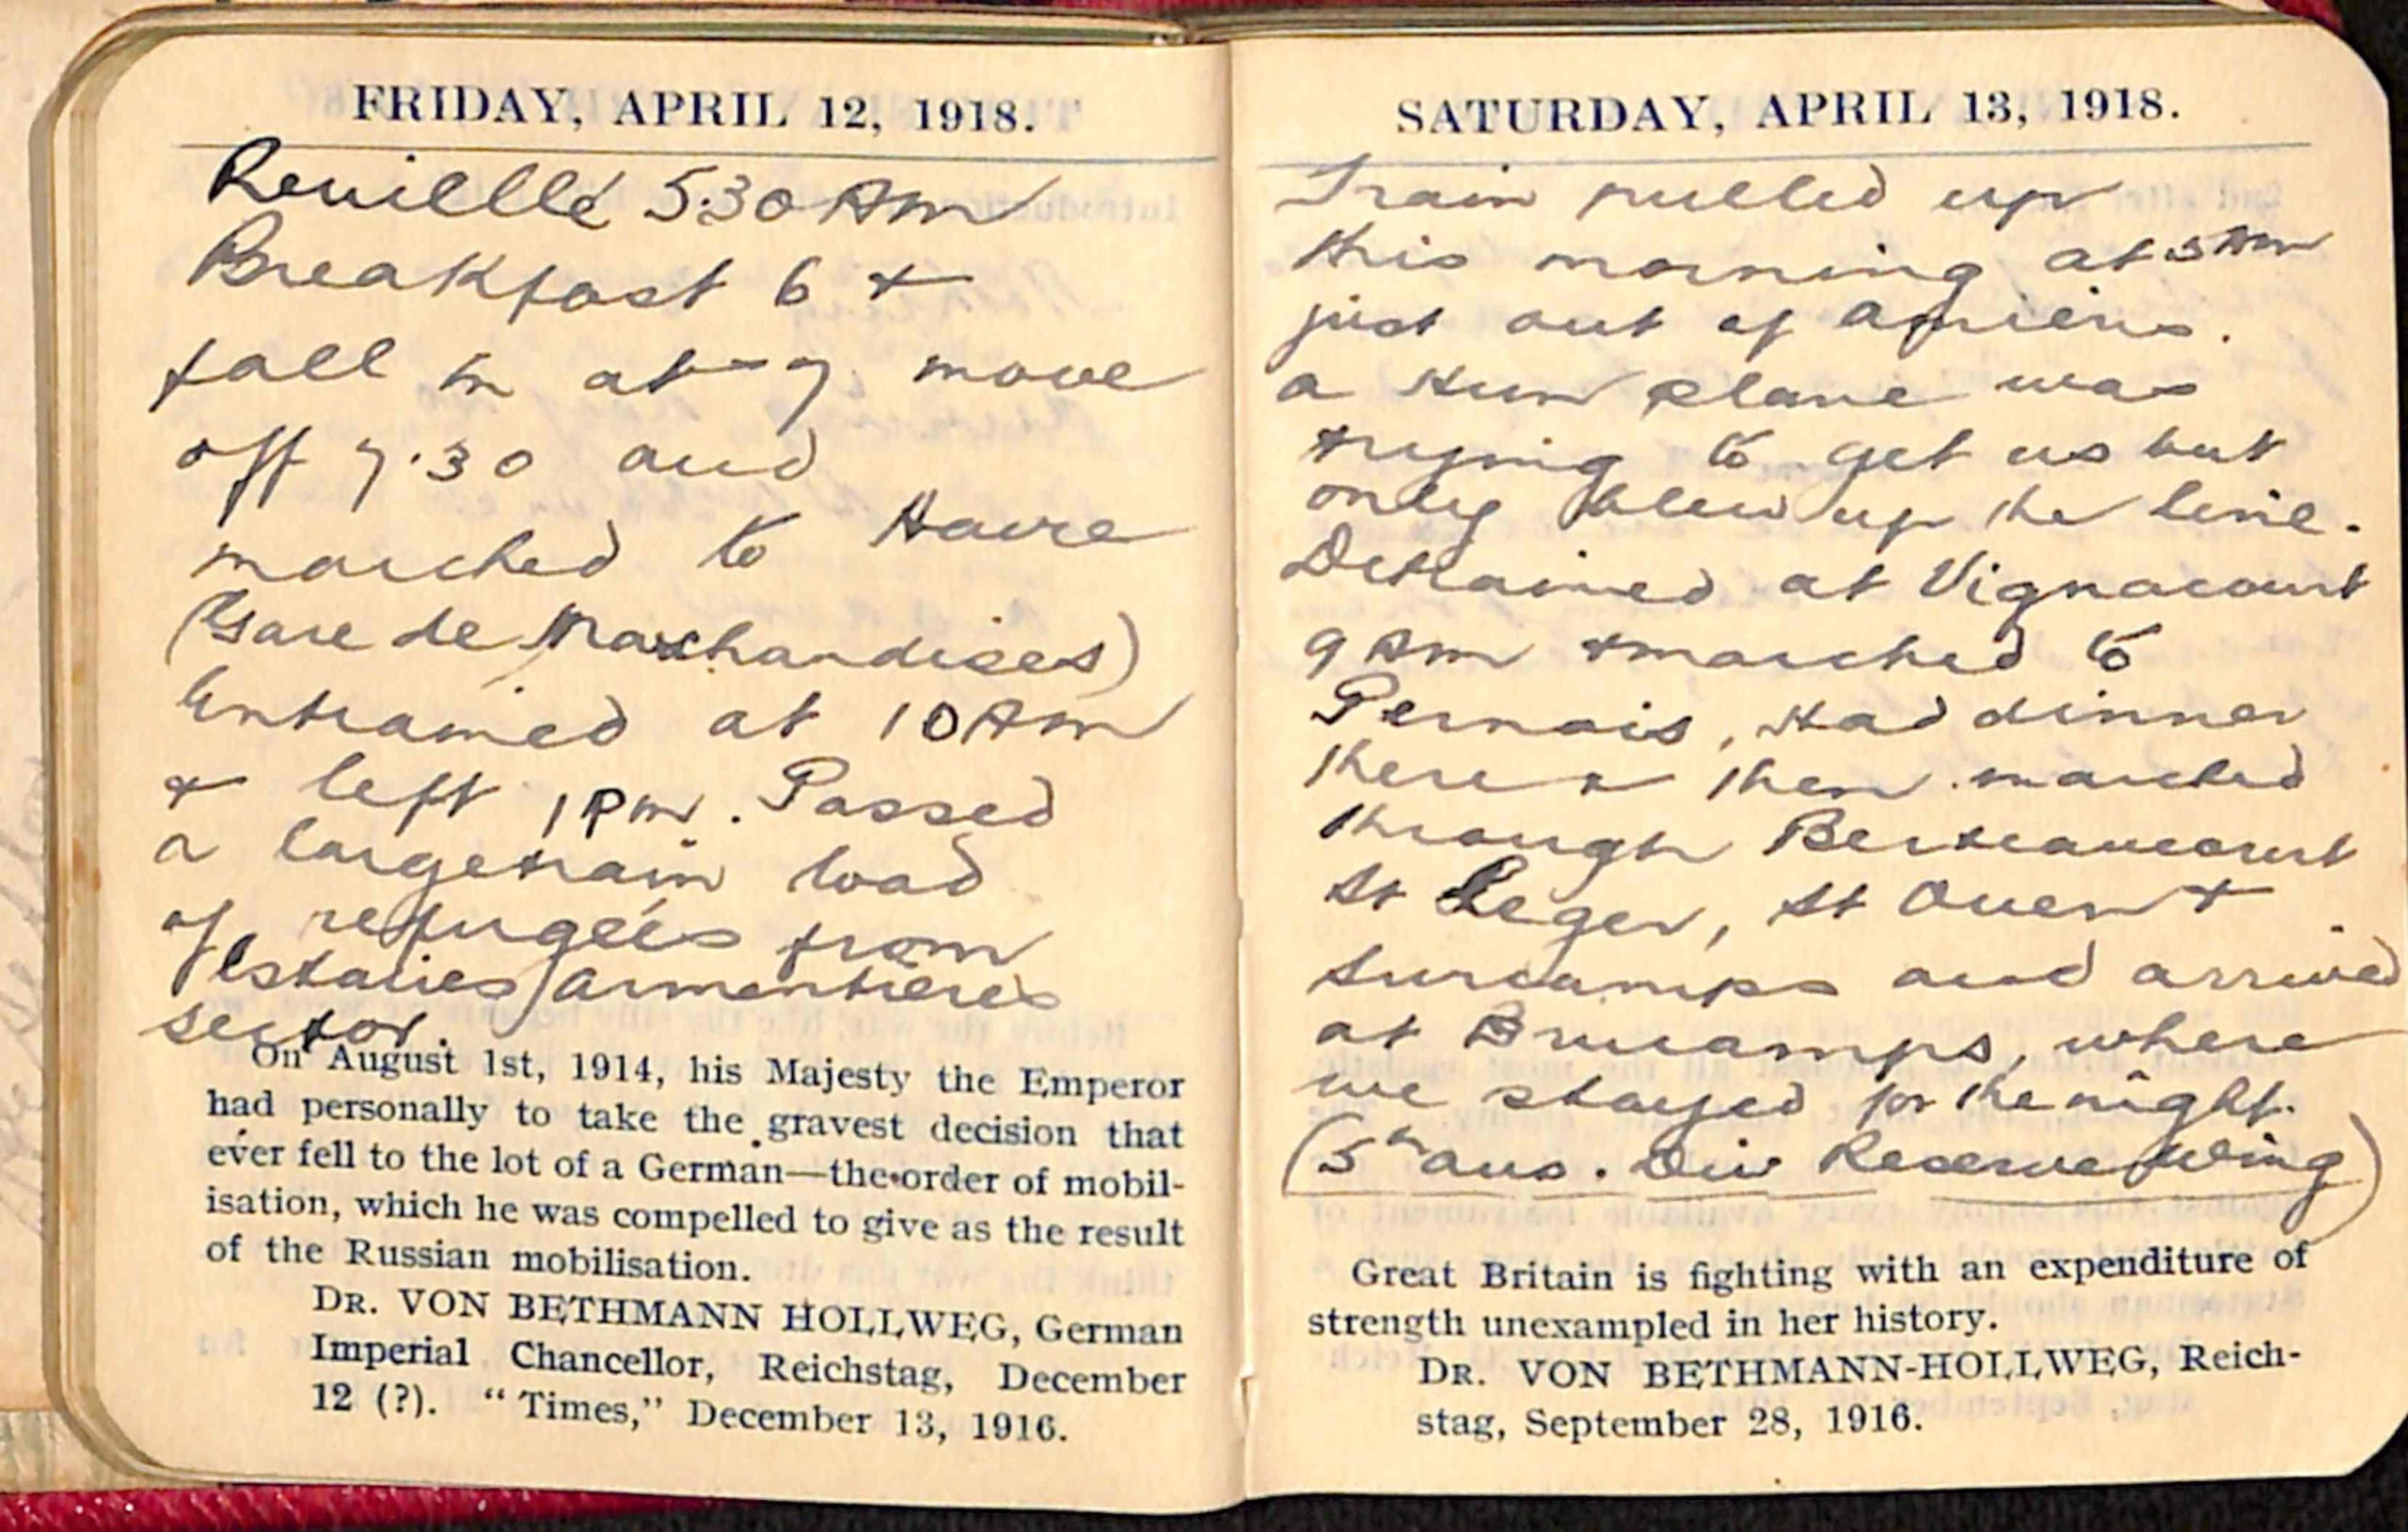 FRIDAY, APRIL 12, 1918.
Reuiellé 5.30 Am
Breakfast 6 +
fall in at 7 move
off 7.30 and
marched to Havre
(Gare de Marchandises)
Entrained at 10 Am
+ left 1 Pm. Passed
a large train load
of refugees from
Estaires/Armentieres
sector.
On August 1st, 1914, his Majesty the Emperor
had personally to take the gravest decision that
ever fell to the lot of a German—the order of mobil-
isation, which he was compelled to give as the result
of the Russian mobilisation.
DR. VON BETHMANN HOLLWEG, German
Imperial Chancellor, Reichstag, December
12 (?). "Times," December 13, 1916.
SATURDAY, APRIL 13, 1918.
Train pulled up
this morning at 3 Am
just out of Amiens.
a Hun plane was
trying to get us but
only blew up the line.
Detrained at Vignacourt
9 Am + marched to
Pernois, Had dinner
there + then marched
through Berteaucourt
St Leger, St Ouen +
Surcamps and arrived
at Brucamps, where
we stayed for the night.
(5th Aus. Div Reserve Wing)
Great Britain is fighting with an expenditure of
strength unexampled in her history.
DR. VON BETHMANN-HOLLWEG, Reich-
stag, September 28, 1916.